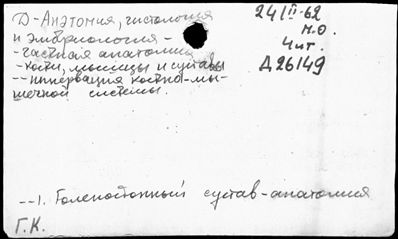 Д-Анатомия, гистология
и эмбриология -
- частная анатомия
- кости, мышцы и суставы
-- иннервация костно-мы-
шечной системы.
241 II-62
М.О.
4 чт.
Д26149
--1. Голеностопный сустав-анатомия
Г.К.